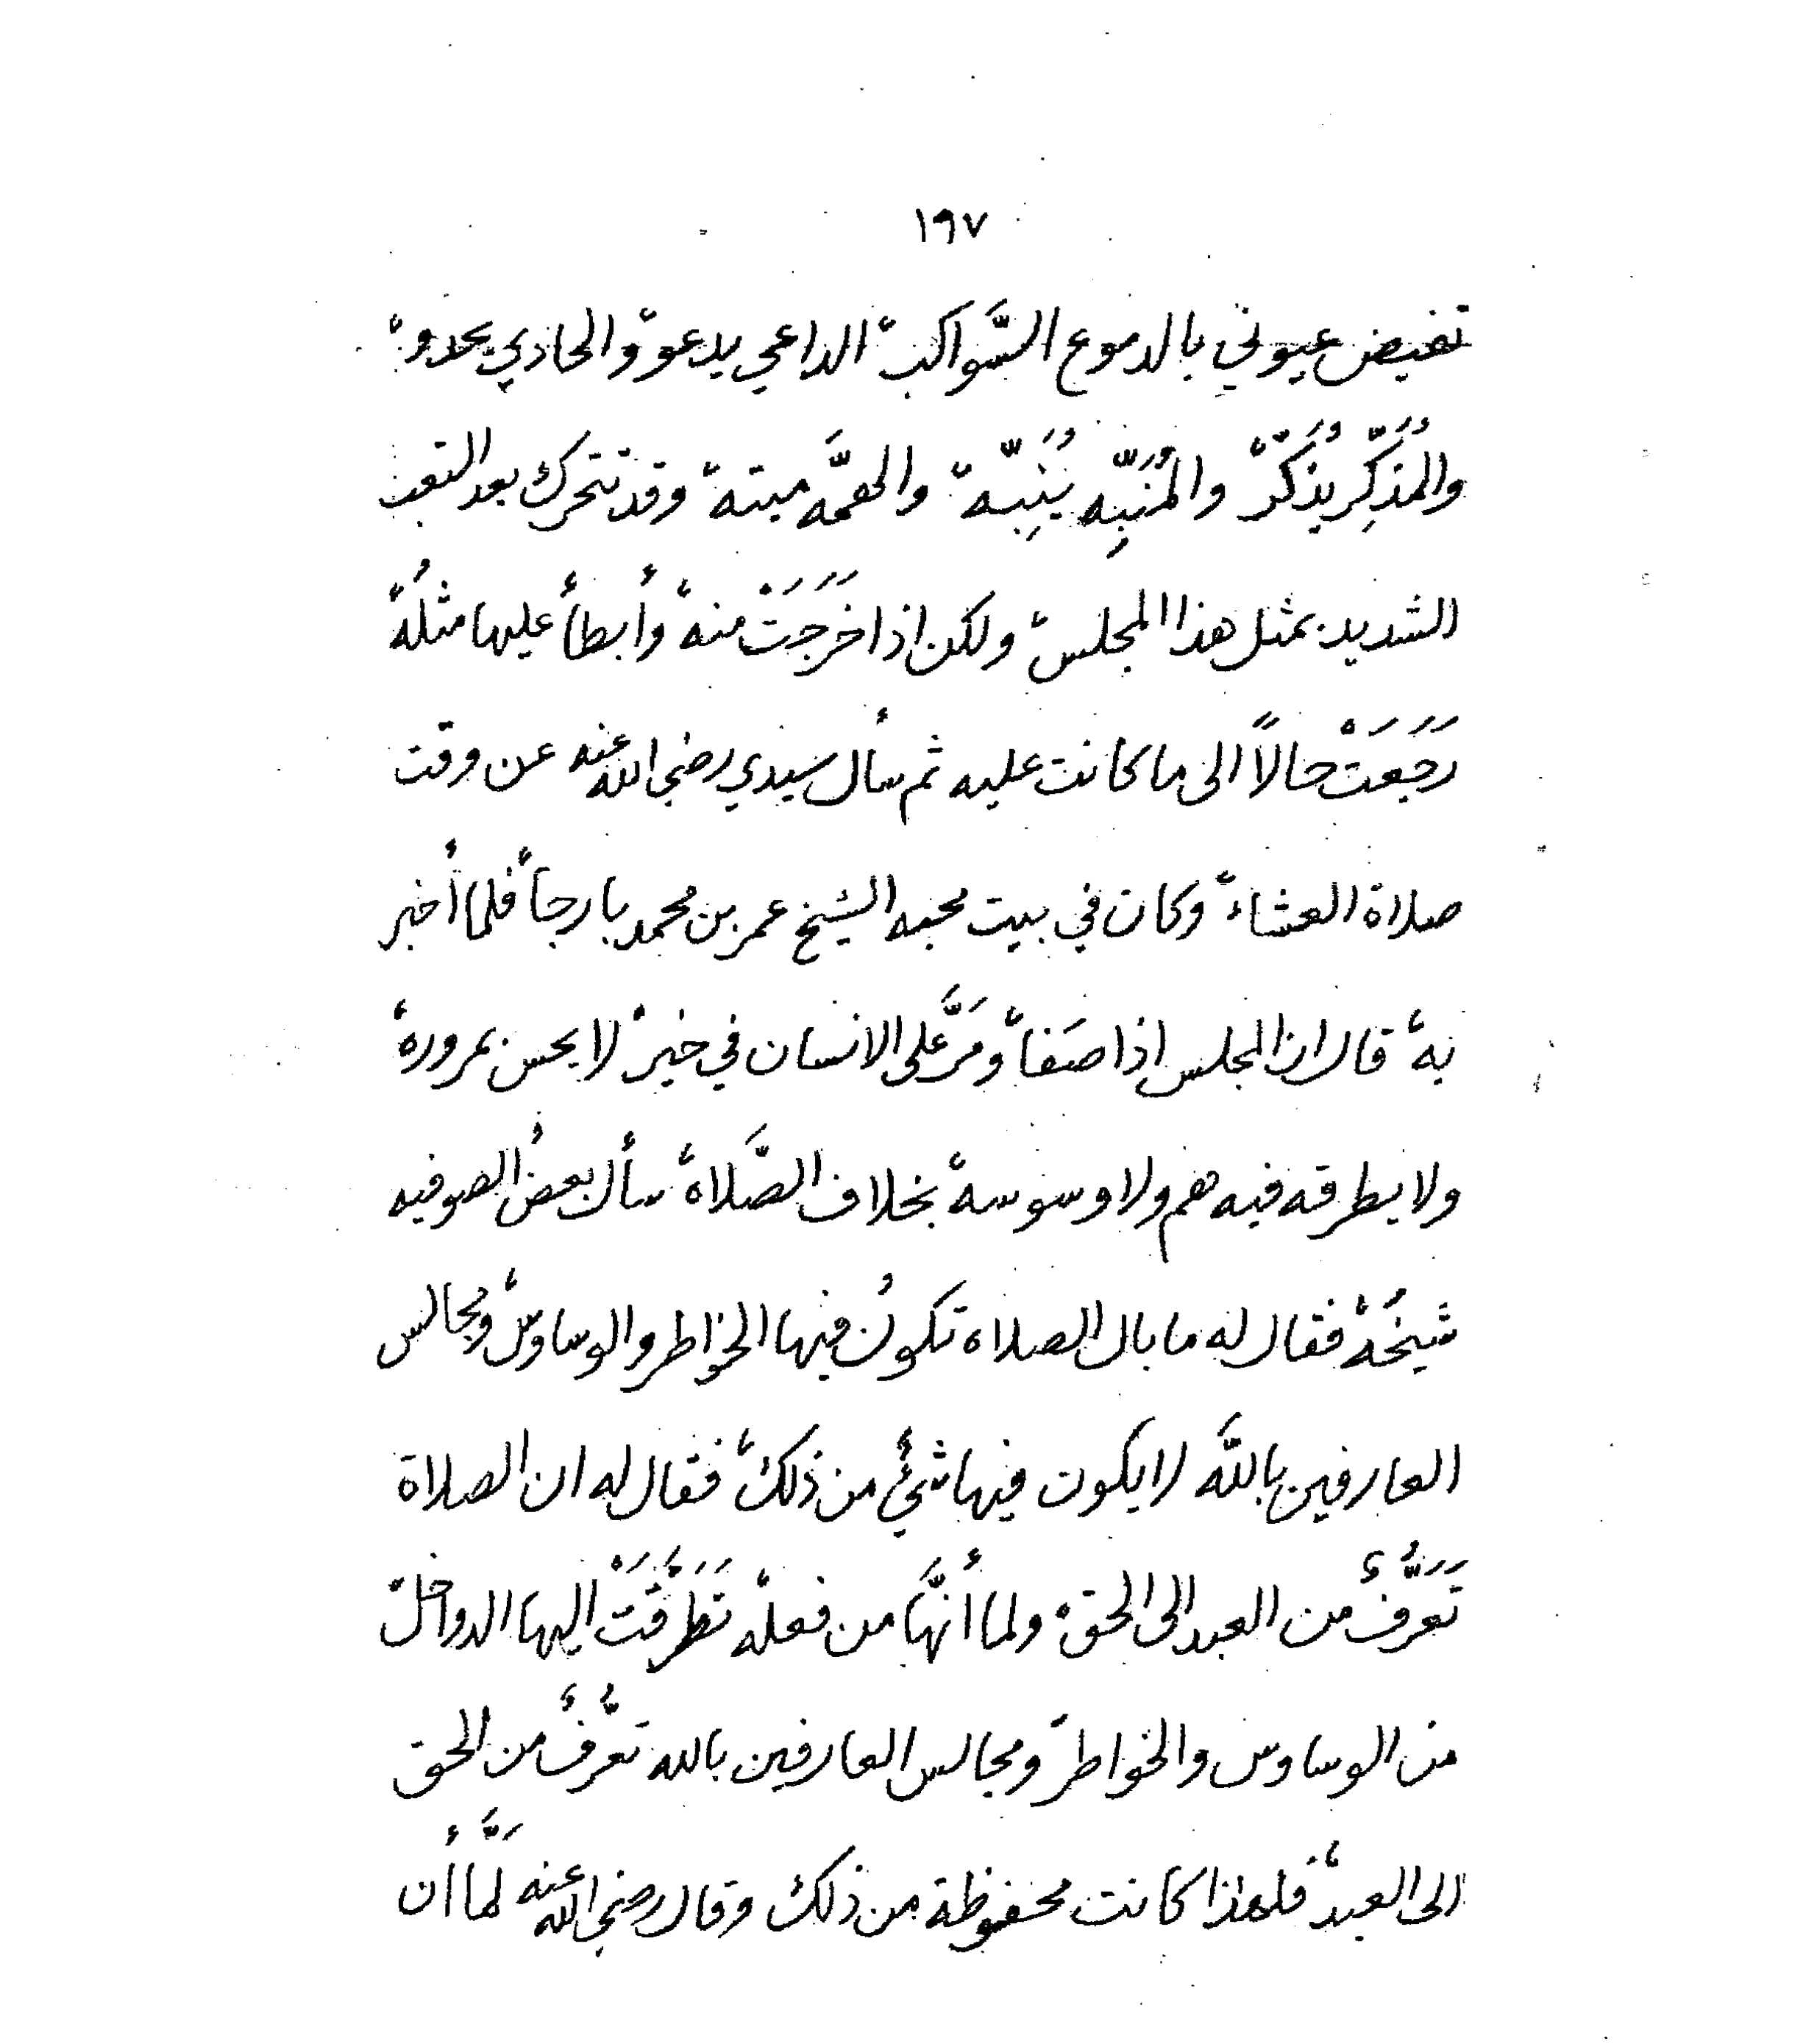 ١٩٧
تفيض عيوني بالدموع السَّواكب، الداعي يدعو، والحادي يحدو،
والمُذَكِّر يُذَكِّر، والمُنَبِّه يُنَبِّه، والهمَّه ميته، وقد تتحرك بعد التعب
الشديد بمثل هذا المجلس، ولكن اذا خَرَجَتْ منه، وأبطأ عليها مثلُه،
رَجَعَتْ حالاً الى ما كانت عليه ثم سأل سيدي رضي الله عنه عن وقت
صلاة العشاء، وكان في بيت محبه الشيخ عمر بن محمد بارجا، فلما أُخبر
به، قال ان المجلس اذا صَفا، ومَرَّ على الانسان في خير، لا يحس بمروره،
ولا يطرقه فيه هم ولا وسوسه، بخلاف الصَّلاه، سأل بعضُ الصوفيه
شيخَه، فقال له ما بال الصلاه تكونُ فيها الخواطر والوساوس، ومجالس
العارفين باللَّه لا يكون فيها شيءٌ من ذلك، فقال له ان الصلاة
تَعَرُّفٌ من العبد الى الحق، ولما أنَّها من فعله، تَطَرَّقَتْ اليها الدواخل،
من الوساوس والخواطر، ومجالس العارفين بالله تعرُّفٌ من الحق
الى العبد، فلهذا كانت محفوظة من ذلك وقال رضي الله عنه لَمَّا أن